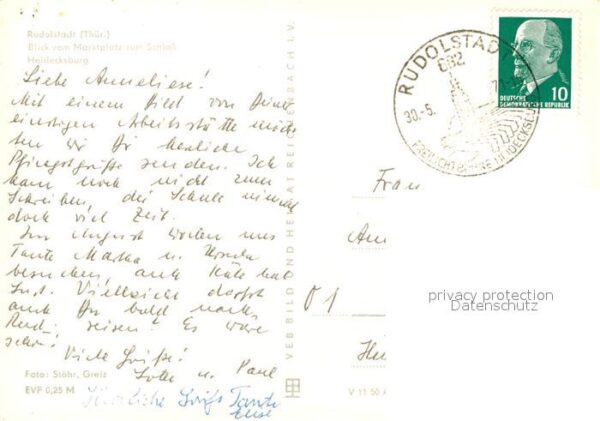 Rudolstadt (Thür.)
Blick vom Marktplatz zum Schloß
Heidecksburg
Liebe Anneliese!
Mit einem Bild von Deiner
einstigen Arbeitsstätte möch
ten wir Dir herzliche
Pfingstgrüße senden. Ich
kam noch nicht zum
Schreiben, die Schule nimmt
doch viel Zeit.
Im August wollen uns
Tante Martha u.
besuchen, auch Käte hat
Lust. Vielleicht darfst
auch Du bald nach
Rud. reisen? Es wäre
schön!
Viele Grüße!
Lotte u. Paul
Herzliche Grüße Tante
Else
Foto: Stöhr, Greiz
EVF 0,25 M
VEB BILD UND HEIMAT REICHENBACH I. V.
V 11 50
RUDOLSTADT
682
30.-5.
FREILICHTBÜHNE HEIDECKSBURG
10
DEUTSCHE
DEMOKRATISCHE REPUBLIK
Frau
An
01
privacy protection
Datenschutz